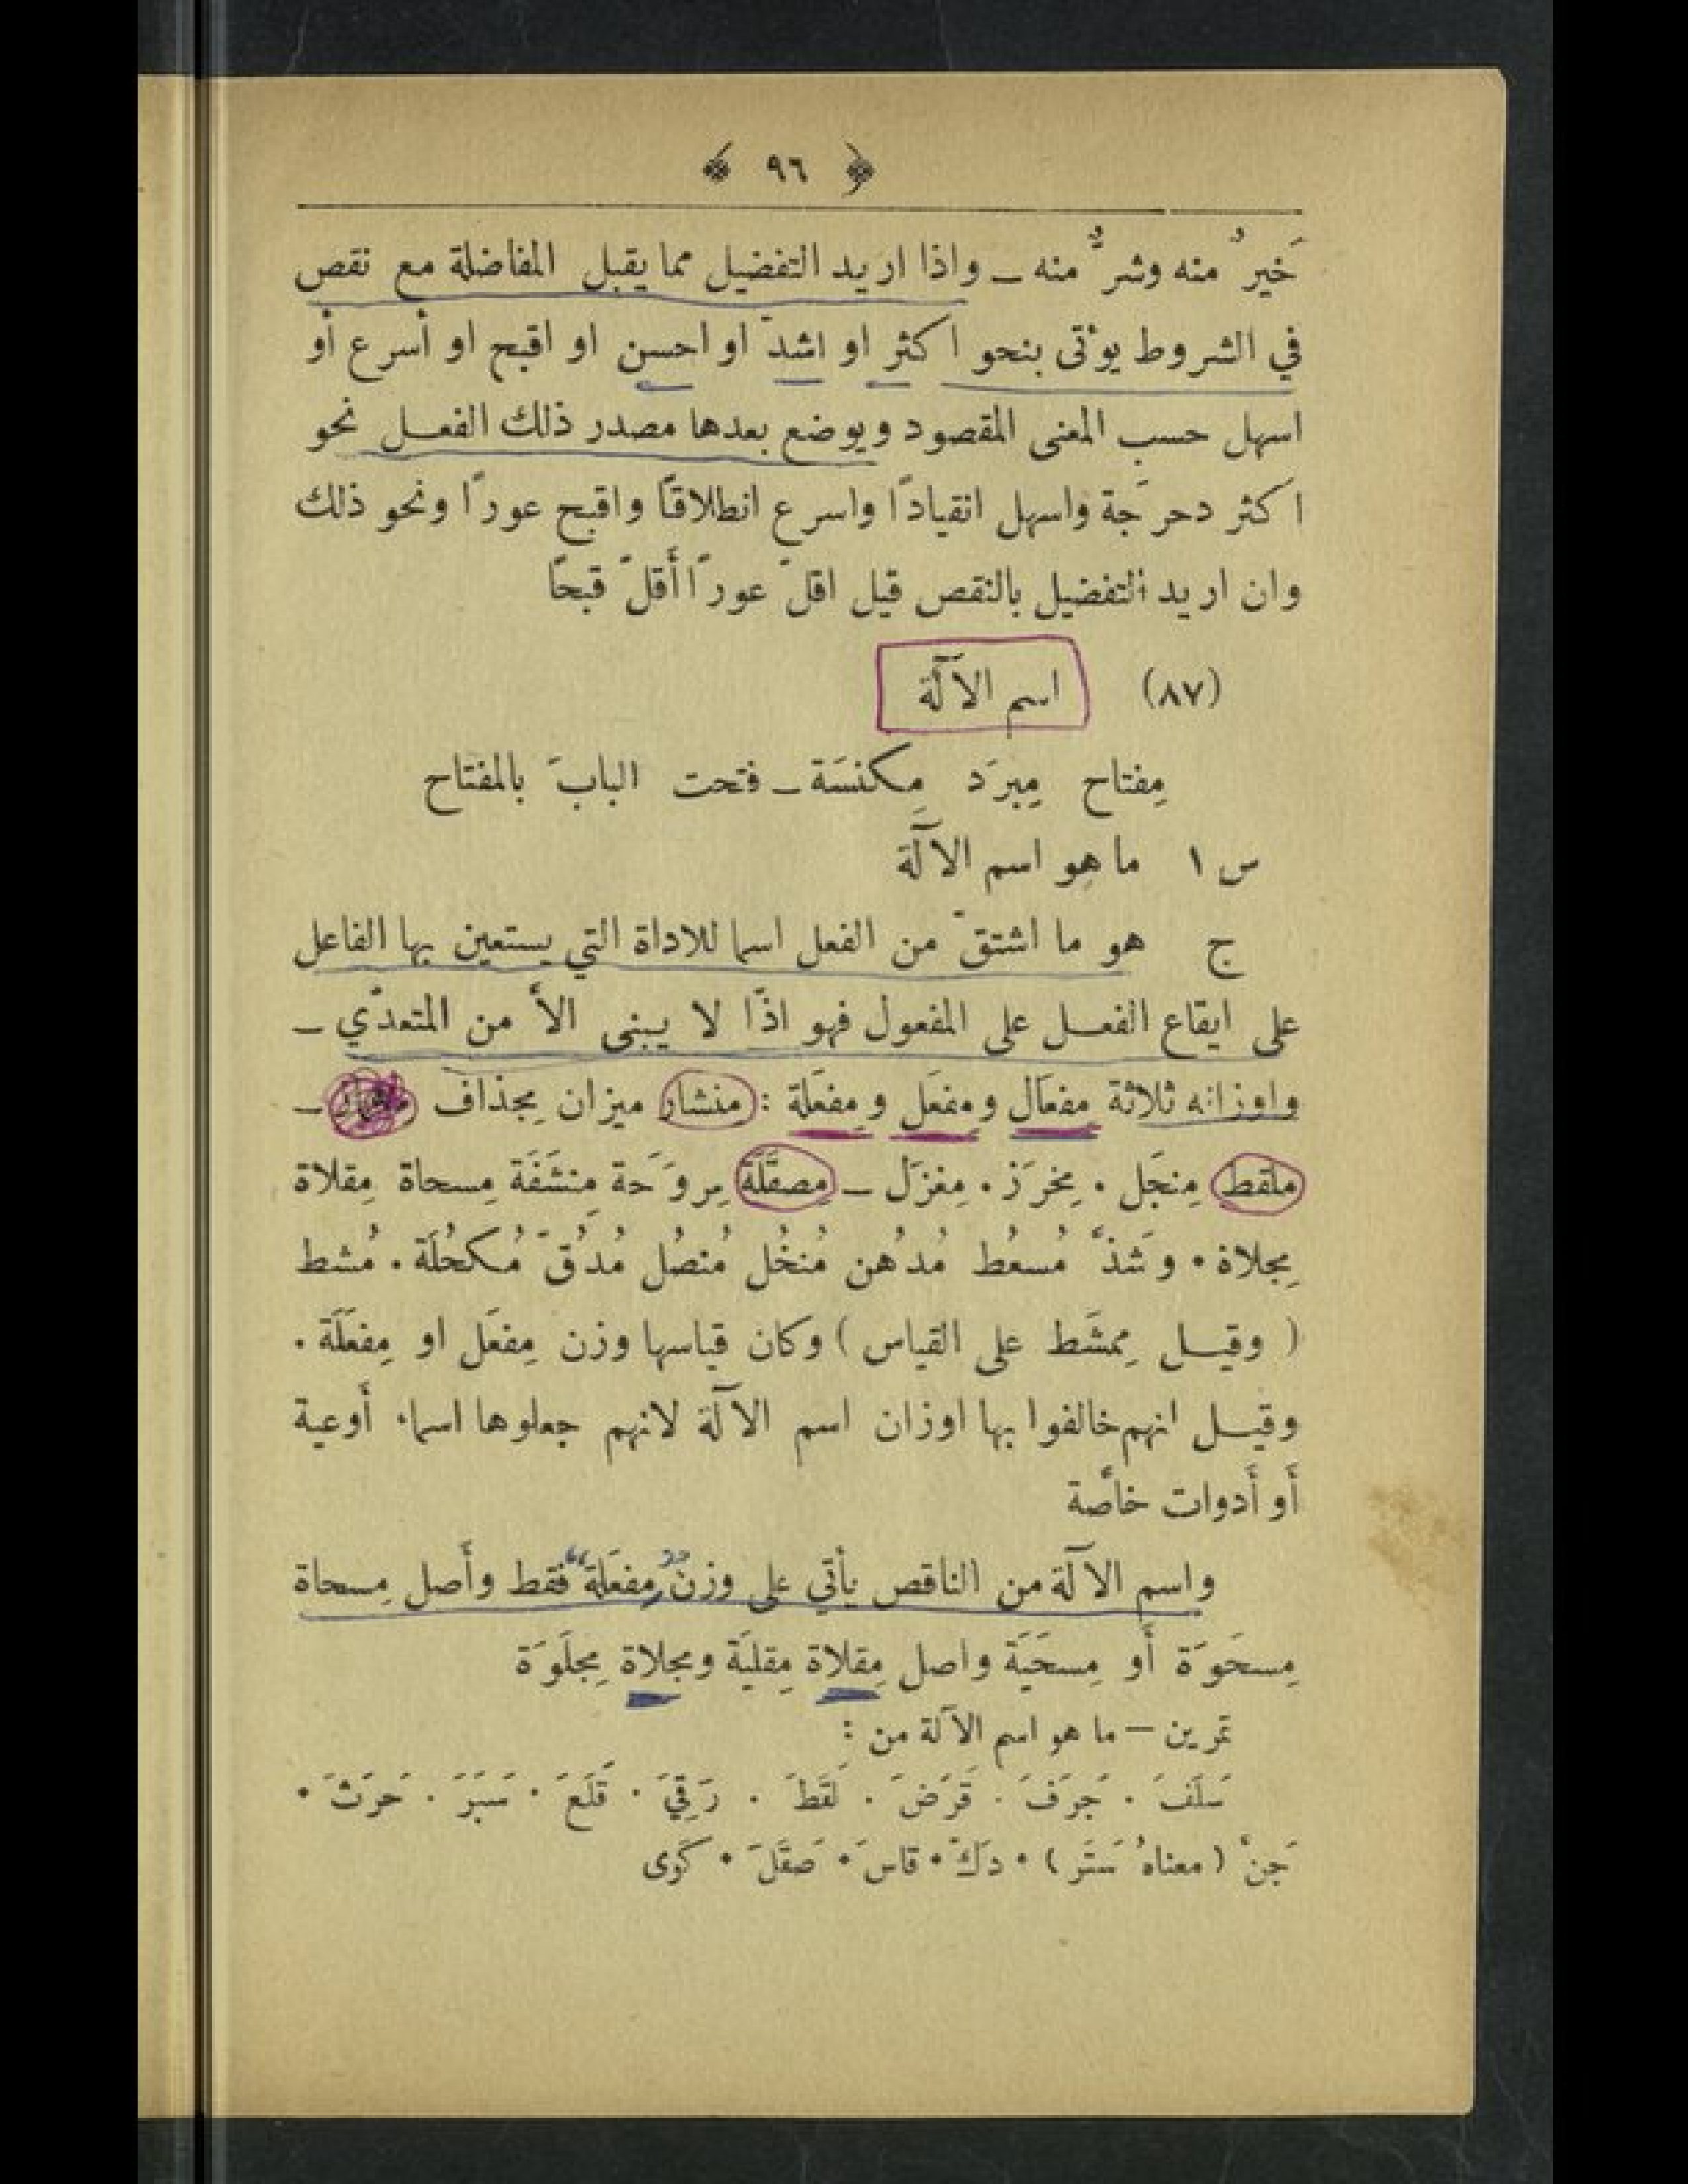 ﴿ ٩٦ ﴾
خَيرٌ منه وشرٌّ منه ــ واذا اريد التفضيل مما يقبل المفاضلة مع نقص
في الشروط يوْتى بنحو اكثر او اشدّ او احسن او اقبح او أسرع أو
اسهل حسب المعنى المقصود ويوضع بعدها مصدر ذلك الفعـل نحو
اكثر دحرجَة واسهل انقيادًا واسرع انطلاقًا واقبح عورًا ونحو ذلك
وان اريد التفضيل بالنقص قيل اقلّ عورًا أَقلّ قبحًا
(٨٧) اسم الآلَة
مِفتاح مِبرَد مِكنسَة ــ فتحت البابَ بالمفتاح
س ١ ما هو اسم الآلَة
ج هو ما اشتقّ من الفعل اسما للاداة التي يستعين بها الفاعل
على ايقاع الفعـل على المفعول فهو اذًا لا يـبنى الأ من المتعدّي ــ
واوزانه ثلاثة مِفعَال ومِفعَل ومِفعَلة : منشار ميزان مِجذاف ــ
ملقط مِنجَل . مِخرَز . مِغزَل ــ مِصقَلَة مِروَحة مِنشَفَة مِسحاة مِقلاة
مِجلاة . وشَذَّ مُسعُط مُدهُن مُنخُل مُنصُل مُدُقّ مُكحُلَة . مُشط
( وقيـل مِمشَط على القياس ) وكان قياسها وزن مِفعَل او مِفعَلَة .
وقيـل انهم خالفوا بها اوزان اسم الآلَة لانهم جعلوها اسماء أَوعية
أَو أَدوات خاصَّة
واسم الآلَة من الناقص يأتي على وزن "مِفعَلَة" فقط وأَصل مِسحاة
مِسحَوَة أَو مِسحَيَة واصل مِقلاة مِقليَة ومجلاة مِجلَوَة
تمرين — ما هو اسم الآلة من :
سَلَفَ . جَرَفَ . قَرَضَ . لَقَطَ . رَقِيَ . قَلَعَ . سَبَرَ . حَرَثَ .
جَنَّ ( معناهُ سَتَر ) . دَكّ . قاسَ . صَقَلَ . كَوَى